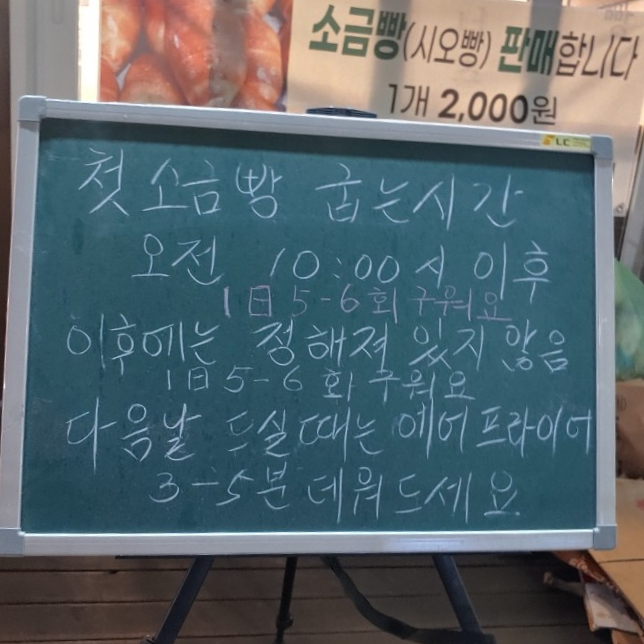 소금빵(시오빵) 판매합니다
1개 2,000원
LC
첫 소금빵 굽는시간
오전 10:00시 이후
1日 5-6회 구워요
이후에는 정해져 있지 않음
1日 5-6회 구워요
다음날 드실때는 에어프라이어
3-5분 데워드세요.